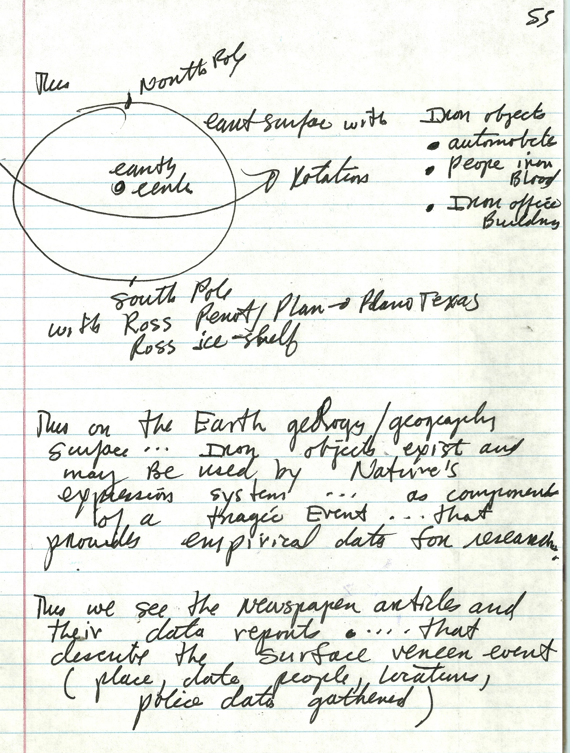 55
Thus
North Pole
eart surfac with
Iron objects
• automobiles
• peope iron
Blood
• Iron office
Buildings
earth
cente
Rotation
South Pole
with Ross Perot / Plan → Plano Texas
Ross ice-shelf
Thus on the Earth geology/geography
surface ... Iron objects exist and
may Be used by Nature's
expression system ... as components
of a tragic Event ... that
provides empirical data for research.
Thus we see the Newspaper articles and
their data reports ..... that
describe the surface veneer event
( place, date, people, locations,
police data gathered )